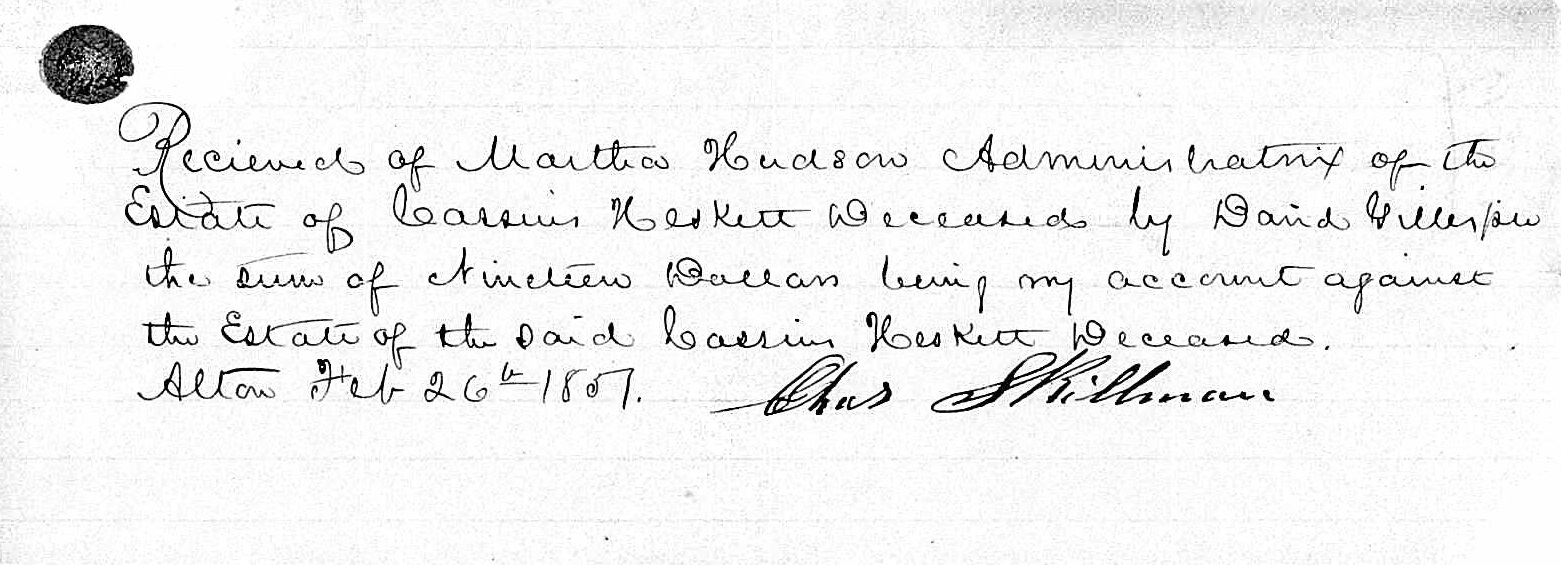 Recieved of Martha Hudson Administratrix of the
Estate of Cassius Heskett Deceased by David Gillespie
the sum of Nineteen Dollars being my account against
the Estate of the said Cassius Heskett Deceased.
Alton Feb 26th 1857.   Chas Skillman